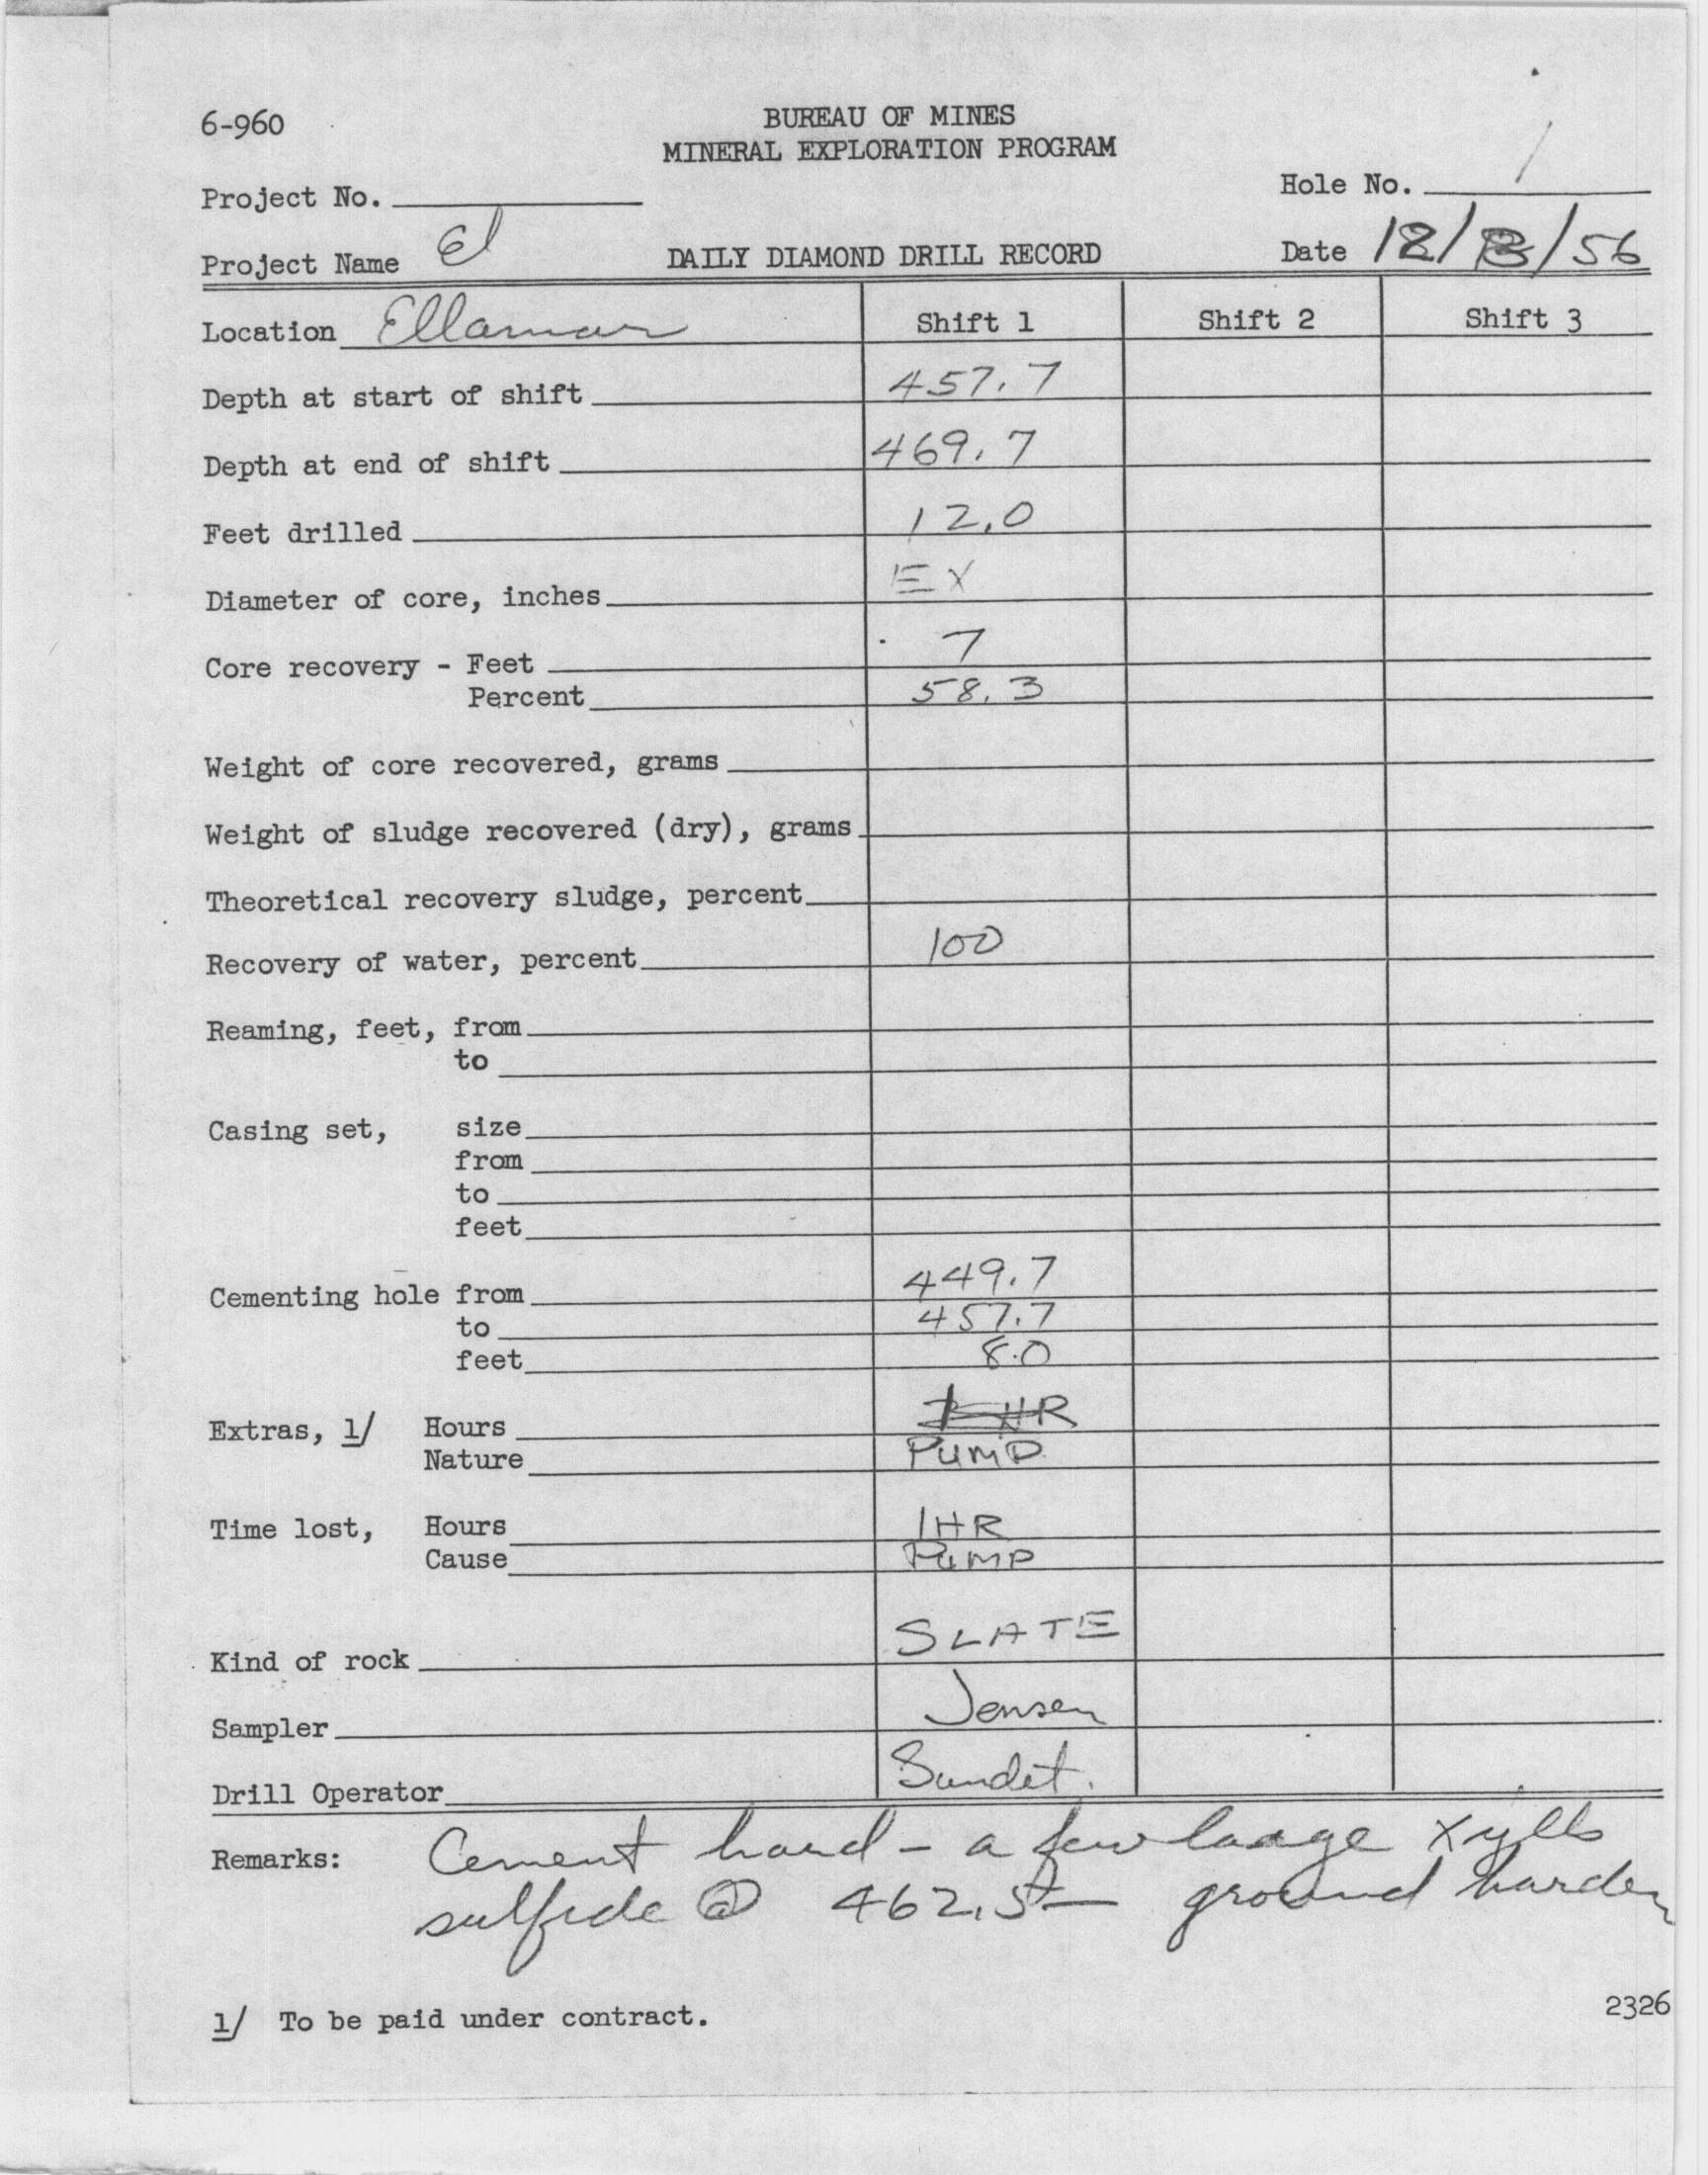 6-960
BUREAU OF MINES
MINERAL EXPLORATION PROGRAM
Project No.
Hole No. 1
Project Name El
DAILY DIAMOND DRILL RECORD
Date 12/ /56
Location Ellamar Shift 1 Shift 2 Shift 3
Depth at start of shift 457.7
Depth at end of shift 469.7
Feet drilled 12.0
Diameter of core, inches EX
Core recovery - Feet 7
Percent 58.3
Weight of core recovered, grams
Weight of sludge recovered (dry), grams
Theoretical recovery sludge, percent
Recovery of water, percent 100
Reaming, feet, from
to
Casing set, size
from
to
feet
Cementing hole from 449.7
to 457.7
feet 8.0
Extras, 1/ Hours HR
Nature PUMP
Time lost, Hours 1HR
Cause PUMP
Kind of rock SLATE
Sampler Jensen
Drill Operator Sundet.
Remarks: Cement hard - a few large
sulfide @ 462.5 — ground harder
1/ To be paid under contract.
2326